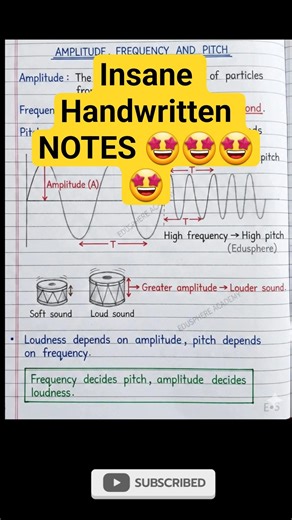 AMPLITUDE, FREQUENCY AND PITCH
Insane
Handwritten
NOTES 🤩🤩🤩
🤩
Amplitude : The of particles
Frequen
pitch
Amplitude (A)
T
T
T
High frequency → High pitch
(Edusphere)
EDUSPHERE ACADEMY
Greater amplitude → Louder sound.
Soft sound Loud sound
EDUSPHERE ACADEMY
• Loudness depends on amplitude, pitch depends
on frequency.
Frequency decides pitch, amplitude decides
loudness.
SUBSCRIBED